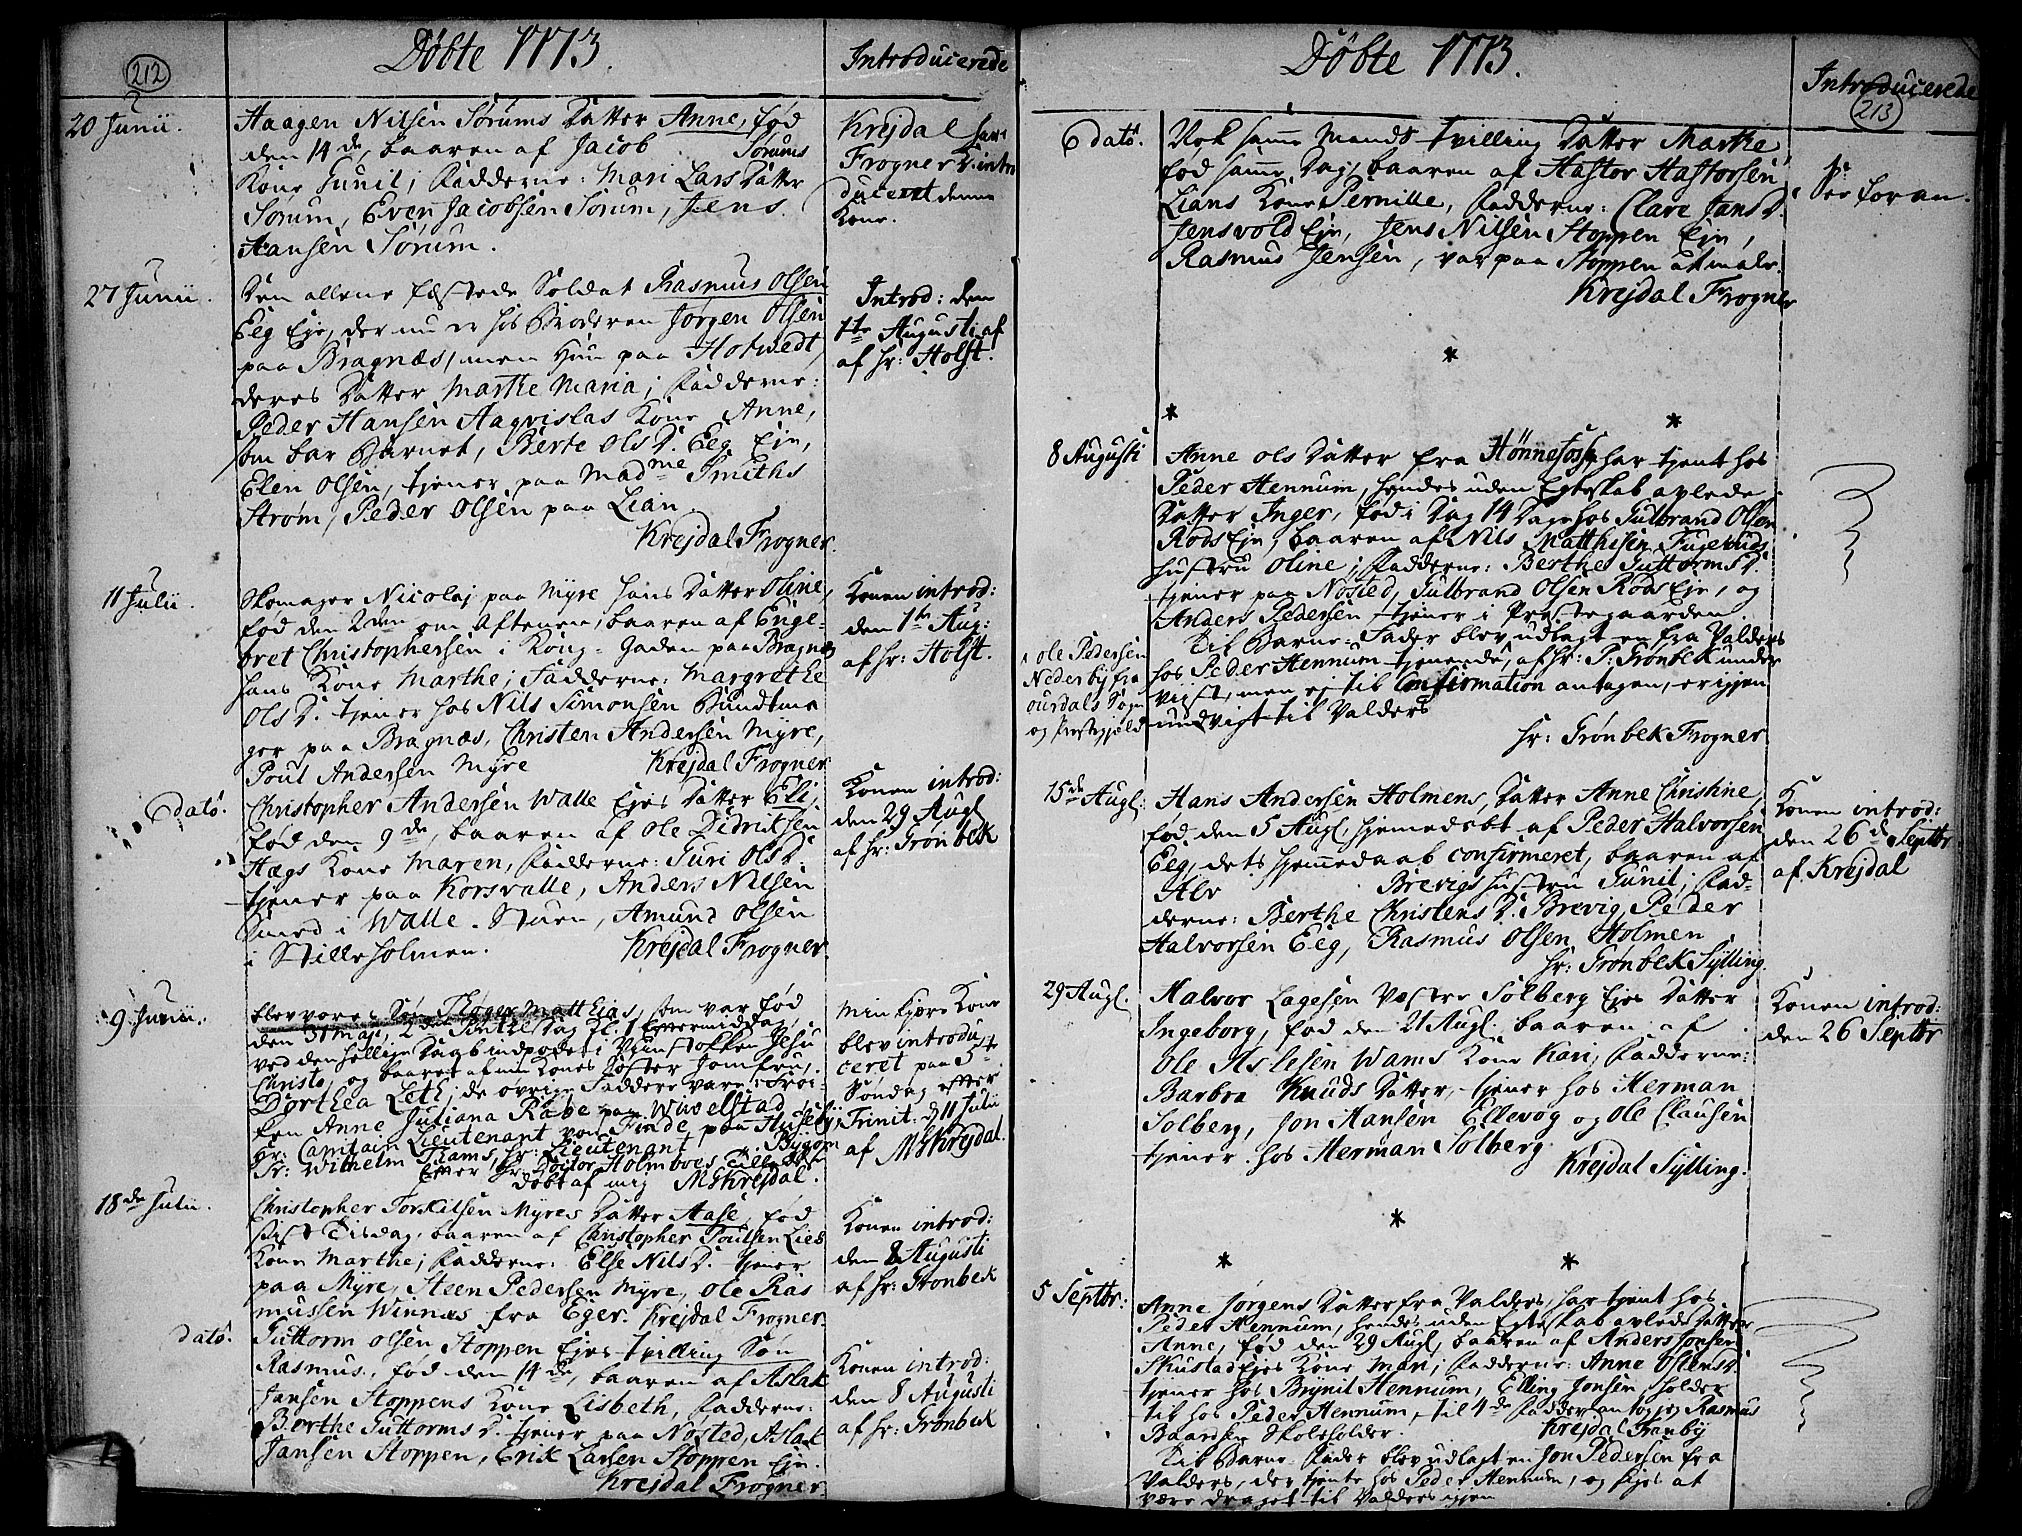 212
Döbte 1773.
Introducerede
20 Junii.
Haagen Nilsen Sørums Datter Anne, fød
den 14de, baaren af Jacob Sørums
Kone Gunil; Fadderne: Mari Lars Datter
Sørum, Even Jacobsen Sørum, Jens
Hansen Sørum.
Krejdal
Frogner introducert denne
Kone.
27 Junii.
Den allene fæstede Soldat Rasmus Olsen
Eeg Eje, der nu er hos Broderen Jørgen Olsen
paa Bragnæs, men hun paa Hotvedt,
deres Datter Marthe Maria; Fadderne:
Peder Hansen Aaqvislas Kone Anne,
som bar Barnet, Berte Ols D. Eeg Eje,
Elen Olsen, tjener paa Madme Smiths
Strøm, Peder Olsen paa Lian
Krejdal Frogner.
Introd: den
1te Augusti af
af hr: Holst.
11 Julii.
Skomager Nicolaj paa Myre hans Datter Oline,
fød den 2den om Aftenen, baaren af Enge-
bret Christophersen i Kong-Gaden paa Bragnæs
hans Kone Marthe; Fadderne: Margrethe
Ols D. tjener hos Nils Simonsen Bundtma
ger paa Bragnæs, Christen Andersen Myre,
Poul Andersen Myre Krejdal Frogner
Konen introd:
den 1te Aug:
af hr: Holst.
dato.
Christopher Andersen Walle Ejes Datter Eli,
fød den 9de, baaren af Ole Didriksen
Hægs Kone Maren, Fadderne: Guri Ols D.
tjener paa Korsvalle, Anders Nilsen
Smed i Walle-Stuen, Amund Olsen
i Stilleholmen. Krejdal Frogner.
Konen introd:
den 29 Augl
af hr: Grønbek
9 Junii.
blev vores Søn Thøger Matthias, som var fød
den 31 Maj, 2den Pintze Dag Kl. 1 Eftermiddag,
ved den hellige Daab indpodet i Viinstokken Jesu
Christo, og baaret af min Kones Søster Jomfru
Dorthea Leth; de øvrige Faddere vare: Frø-
ken Anne Juliana Rabe paa Wivelstad,
hr: Capitain Lieutenant von Finde paa Huseby,
hr: Wilhelm Thams, hr: Lieutenant Bygom
Efter hr: Doctor Holmboes Tilladelse
døbt af mig MGKrejdal.
min kjere Kone
blev introdu
ceret paa 5te
Søndag efter
Trinit. d 11 Julii
af MGKrejdal.
18de Julii.
Christopher Torkilsen Myres Datter Aase, fød
sidst Tisdag, baaren af Christopher Poulsen Lies
Kone Marthe; Fadderne: Else Nils D. tjener
paa Myre, Steen Pedersen Myre, Ole Ras
mussen Winnæs fra Eger. Krejdal Frogner.
Konen introd:
den 8 Augusti
af hr: Grønbek
dato.
Guttorm Olsen Stoppen Ejes tvilling Søn
Rasmus, fød den 14de, baaren af Aslak
Jansen Stoppens Kone Lisbeth, Fadderne:
Berthe Guttorms D. tjener paa Nøsted, Aslak
Jansen Stoppen, Erik Larsen Stoppen Eje.
Krejdal Frogner.
Konen introd:
den 8 Augusti
af hr: Grønbek
Döbte 1773.
Introducerede
213
dato.
Nok samme Mands tvilling Datter Marthe
fød samme Dag, baaren af Hastor Hastorsen
Lians Kone Pernille, Fadderne: Clare Jans D.
Jensvold Eje, Jens Nilsen Stoppen Eje,
Rasmus Jensen, var paa Stoppen at male.
Krejdal Frogner
See foran.
*
* *
8 Augusti
Anne Ols Datter fra Hønnefoss, har tjent hos
Peder Hennum, hendes uden Egteskab avlede
Datter Inger, fød i Dag 14 Dage hos Gulbrand Olsen
Røds Eje, baaren af Nils Matthisen Fugeruds
hustru Oline; Fadderne: Berthe Guttorms D.
tjener paa Nøsted, Gulbrand Olsen Røds Eje, og
Anders Pedersen tjener i Prestegaarden.
Til Barne-Fader blev udlagt en fra Valders
hos Peder Hennum tjenende, af hr: P: Grønbek under
viist, men ej til Confirmation antagen, er igjen
undvigt til Valders
hr: Grønbek Frogner
Ole Pedersen
Nederby fra
Ourdals Sogn
og Prestegjeld
15de Augl:
Hans Andersen Holmens Datter Anne Christine,
fød den 5 Augl, hjemedøbt af Peder Halvorsen
Eeg, dets hjemmedaab confirmeret, baaren af
Alv Brevigs hustru Gunil; Fad-
derne: Berthe Christens D. Brevig, Peder
Halvorsen Eeg, Rasmus Olsen Holmen
hr: Grønbek Sylling.
Konen introd:
den 26de Septbr
af Krejdal
29 Augl.
Halvor Lagesen Vestre Solberg Ejes Datter
Ingeborg, fød den 21 Augl. baaren af
Ole Aslesen Wams Kone Kari, Fadderne:
Barbra Knuds Datter, tjener hos Herman
Solberg, Jon Hansen Ellevog og Ole Clausen
tjener hos Herman Solberg
Krejdal Sylling.
Konen introd:
den 26 Septbr
*
* *
5 Septbr:
Anne Jørgens Datter fra Valders, har tjent hos
Peder Hennum, hendes uden Egteskab avlede Datter
Anne, fød den 29 Augl, baaren af Anders Jonsen
Skustad Ejes Kone Mari; Fadderne: Anne Ostens D.
tjener hos Brynil Hennum, Elling Jonsen holder
til hos Peder Hennum, til 4de Fadder antog jeg Rasmus
Baardsen Skoleholder. Krejdal Tranby
Til Barne-Fader blev udlagt en Jon Pedersen fra
Valders, der tjente hos Peder Hennum, og siges at
være draget til Valders igjen